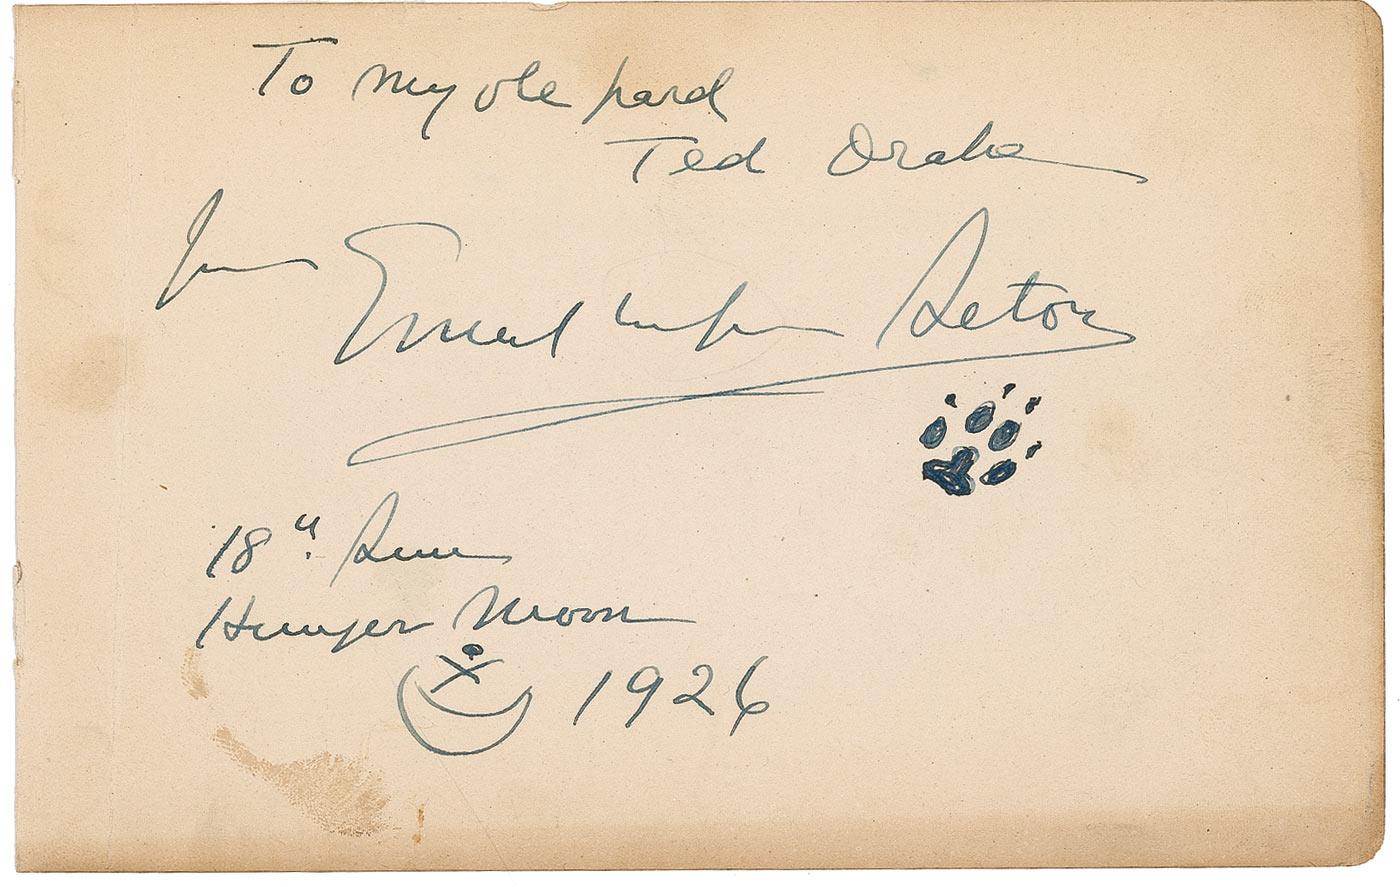 To my ole pard
Ted Drake
from Ernest Thompson Seton
18th. Sun
Hunger Moon
1926